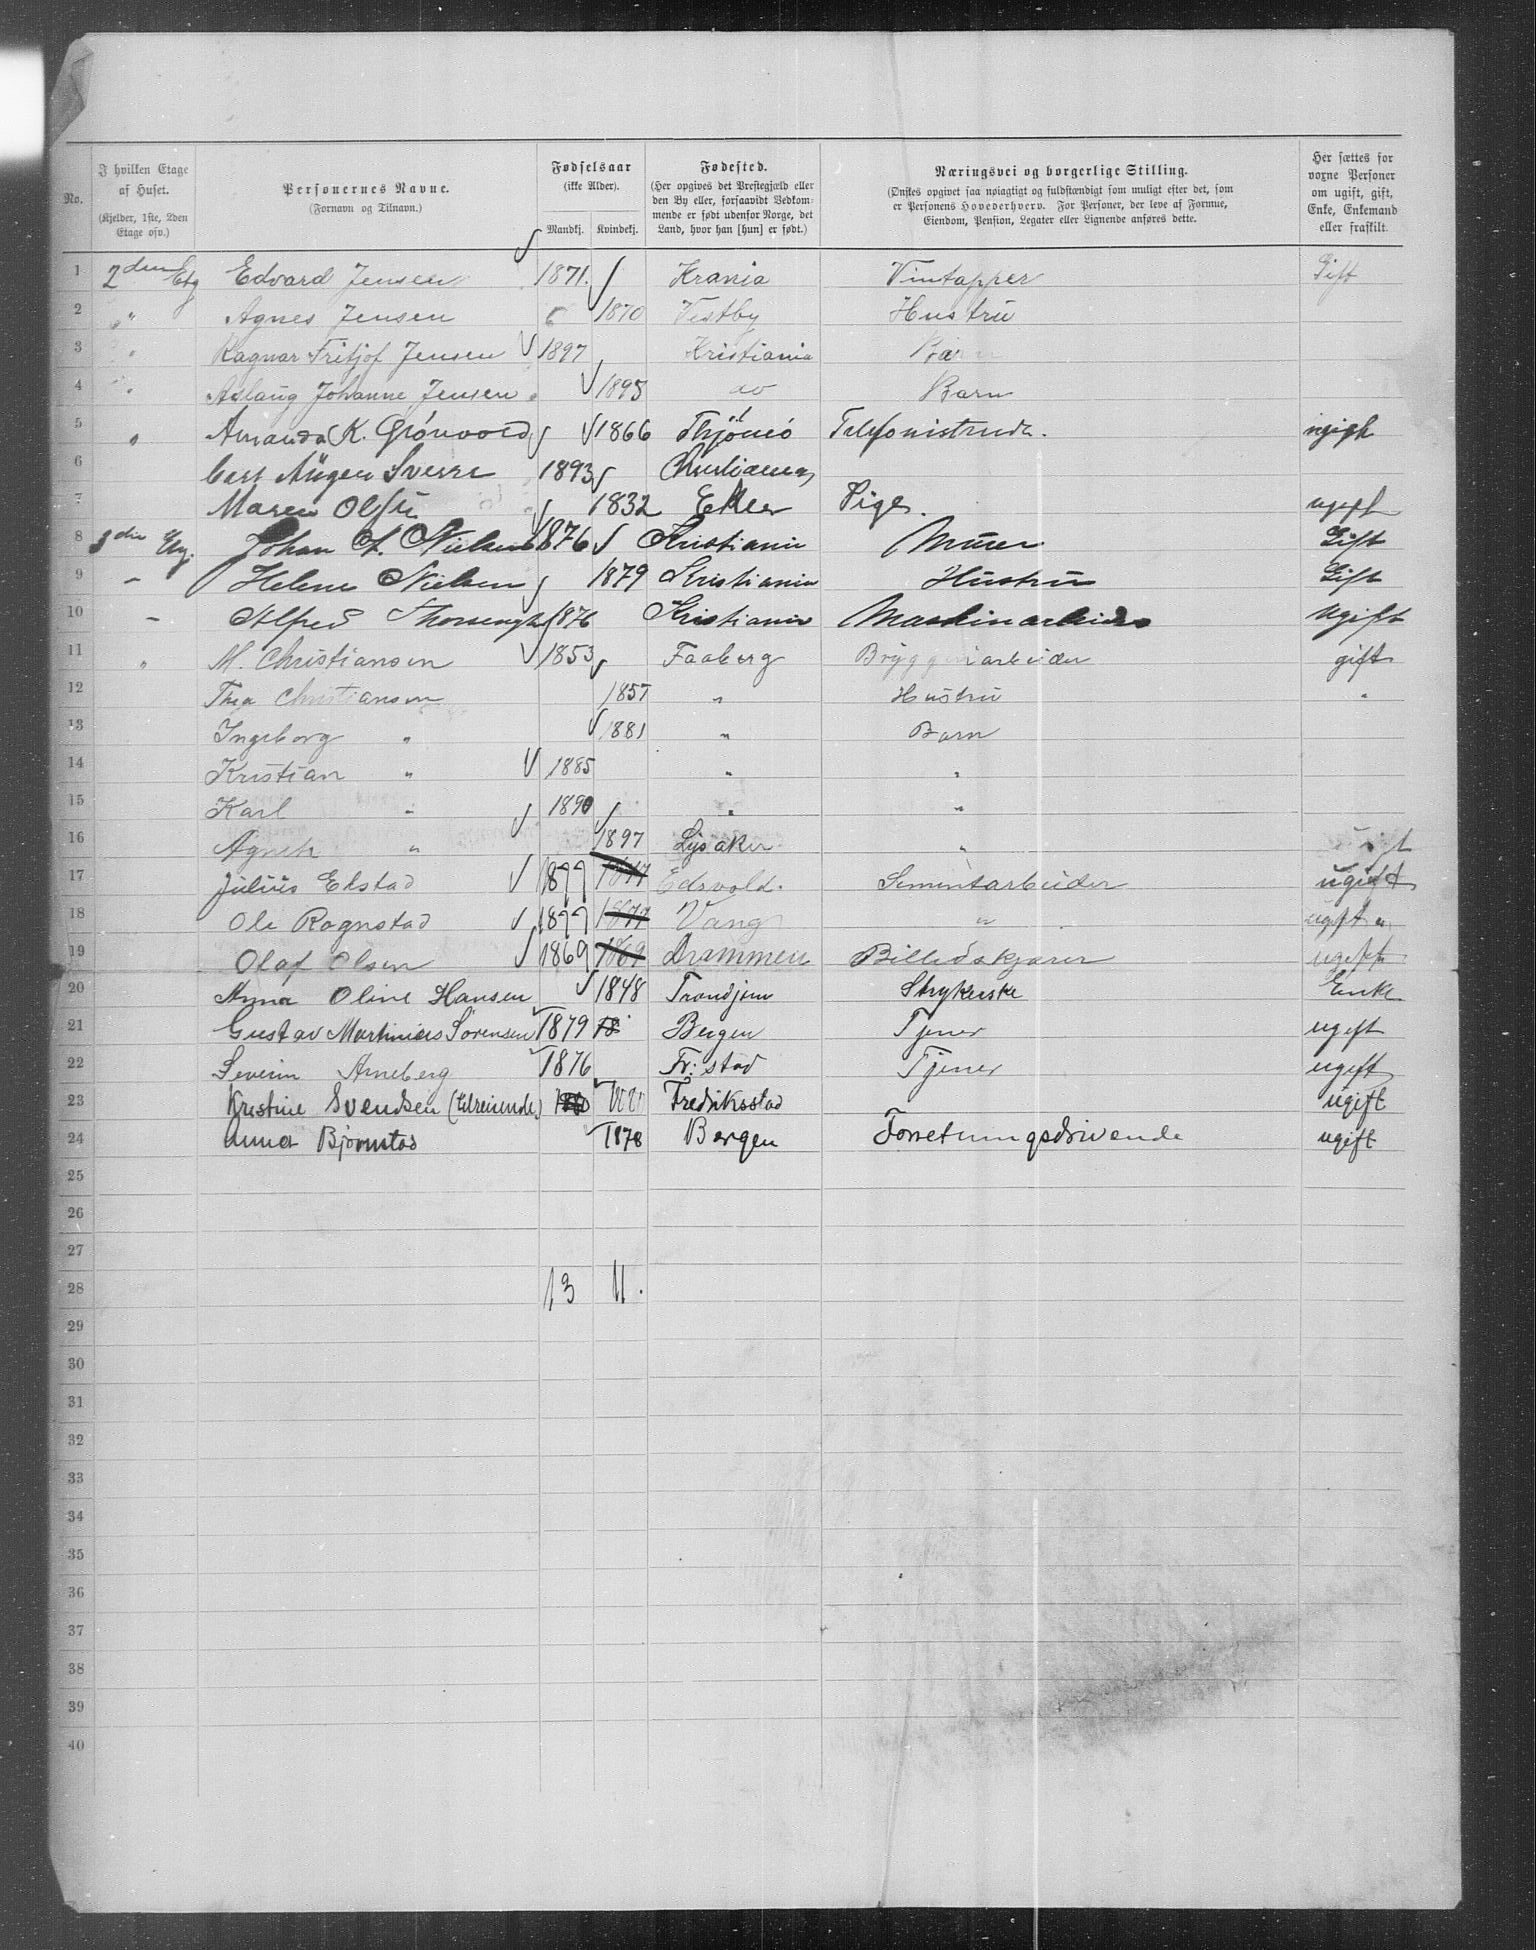 No. | I hvilken Etage af Huset. (Kjelder, 1ste, 2den Etage osv.) | Personernes Navne. (Fornavn og Tilnavn.) | Fødselsaar (ikke Alder). Mandkj. Kvindekj. | Fødested. (Her opgives det Prestegjæld eller den By eller, forsaavidt Vedkommende er født udenfor Norge, det Land, hvor han [hun] er født.) | Næringsvei og borgerlige Stilling. (Ønskes opgivet saa nøiagtigt og fuldstændigt som muligt efter det, som er Personens Hovederhverv. For Personer, der leve af Formue, Eiendom, Pension, Legater eller Lignende anføres dette.) | Her sættes for voxne Personer om ugift, gift, Enke, Enkemand eller fraskilt.
1 2den Etg Edvard Jensen 1871. Krania Vintapper Gift
2 " Agnes Jensen 1870 Vestby Hustru
3 " Ragnar Fritjof Jensen 1897 Kristiania Barn
4 " Aslaug Johanne Jensen 1895 do Barn
5 " Amanda K. Grönvold 1866 Thjömö Telefonistinde. ugift
6 Carl Sverre 1893 Christiania
7 Maren Olsen 1832 Eker Pige. ugift
8 3die Etg. Johan A. Nielsen 1876 Kristiania Murer Gift
9 - Helene Nielsen 1879 Kristiania Hustru Gift
10 - Alfred 1876 Kristiania Maskinarbeider Ugift
11 " M. Christiansen 1853 Faaberg Bryggeriarbeider gift
12 Thea Christiansen 1857 " Hustru "
13 Ingeborg " 1881 " Barn
14 Kristian " 1885 " "
15 Karl " 1890 " "
16 Agneth " 1897 Lysaker "
17 Julius Ekstad 1877 1877 Edsvold. Sementarbeider ugift
18 Ole Rognstad 1877 1877 Vang " ugift
19 Olaf Olsen 1869 1869 Drammen Billedskjærer ugift
20 Anna Oline Hansen 1848 Trondjem Strykerske Enke
21 Gustav Martinius Sörensen 1879 18 Bergen Tjener ugift
22 Severin Arneberg 1876 Fr:stad Tjener ugift
23 Kristine Svendsen (tilreisende) Fredriksstad ugift
24 Anna Bjørnstad 1878 Bergen Forretningsdrivende ugift
25
26
27
28 13 11.
29
30
31
32
33
34
35
36
37
38
39
40